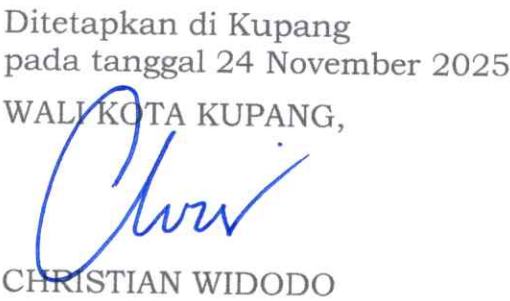 Ditetapkan di Kupang
pada tanggal 24 November 2025
WALI KOTA KUPANG,
CHRISTIAN WIDODO